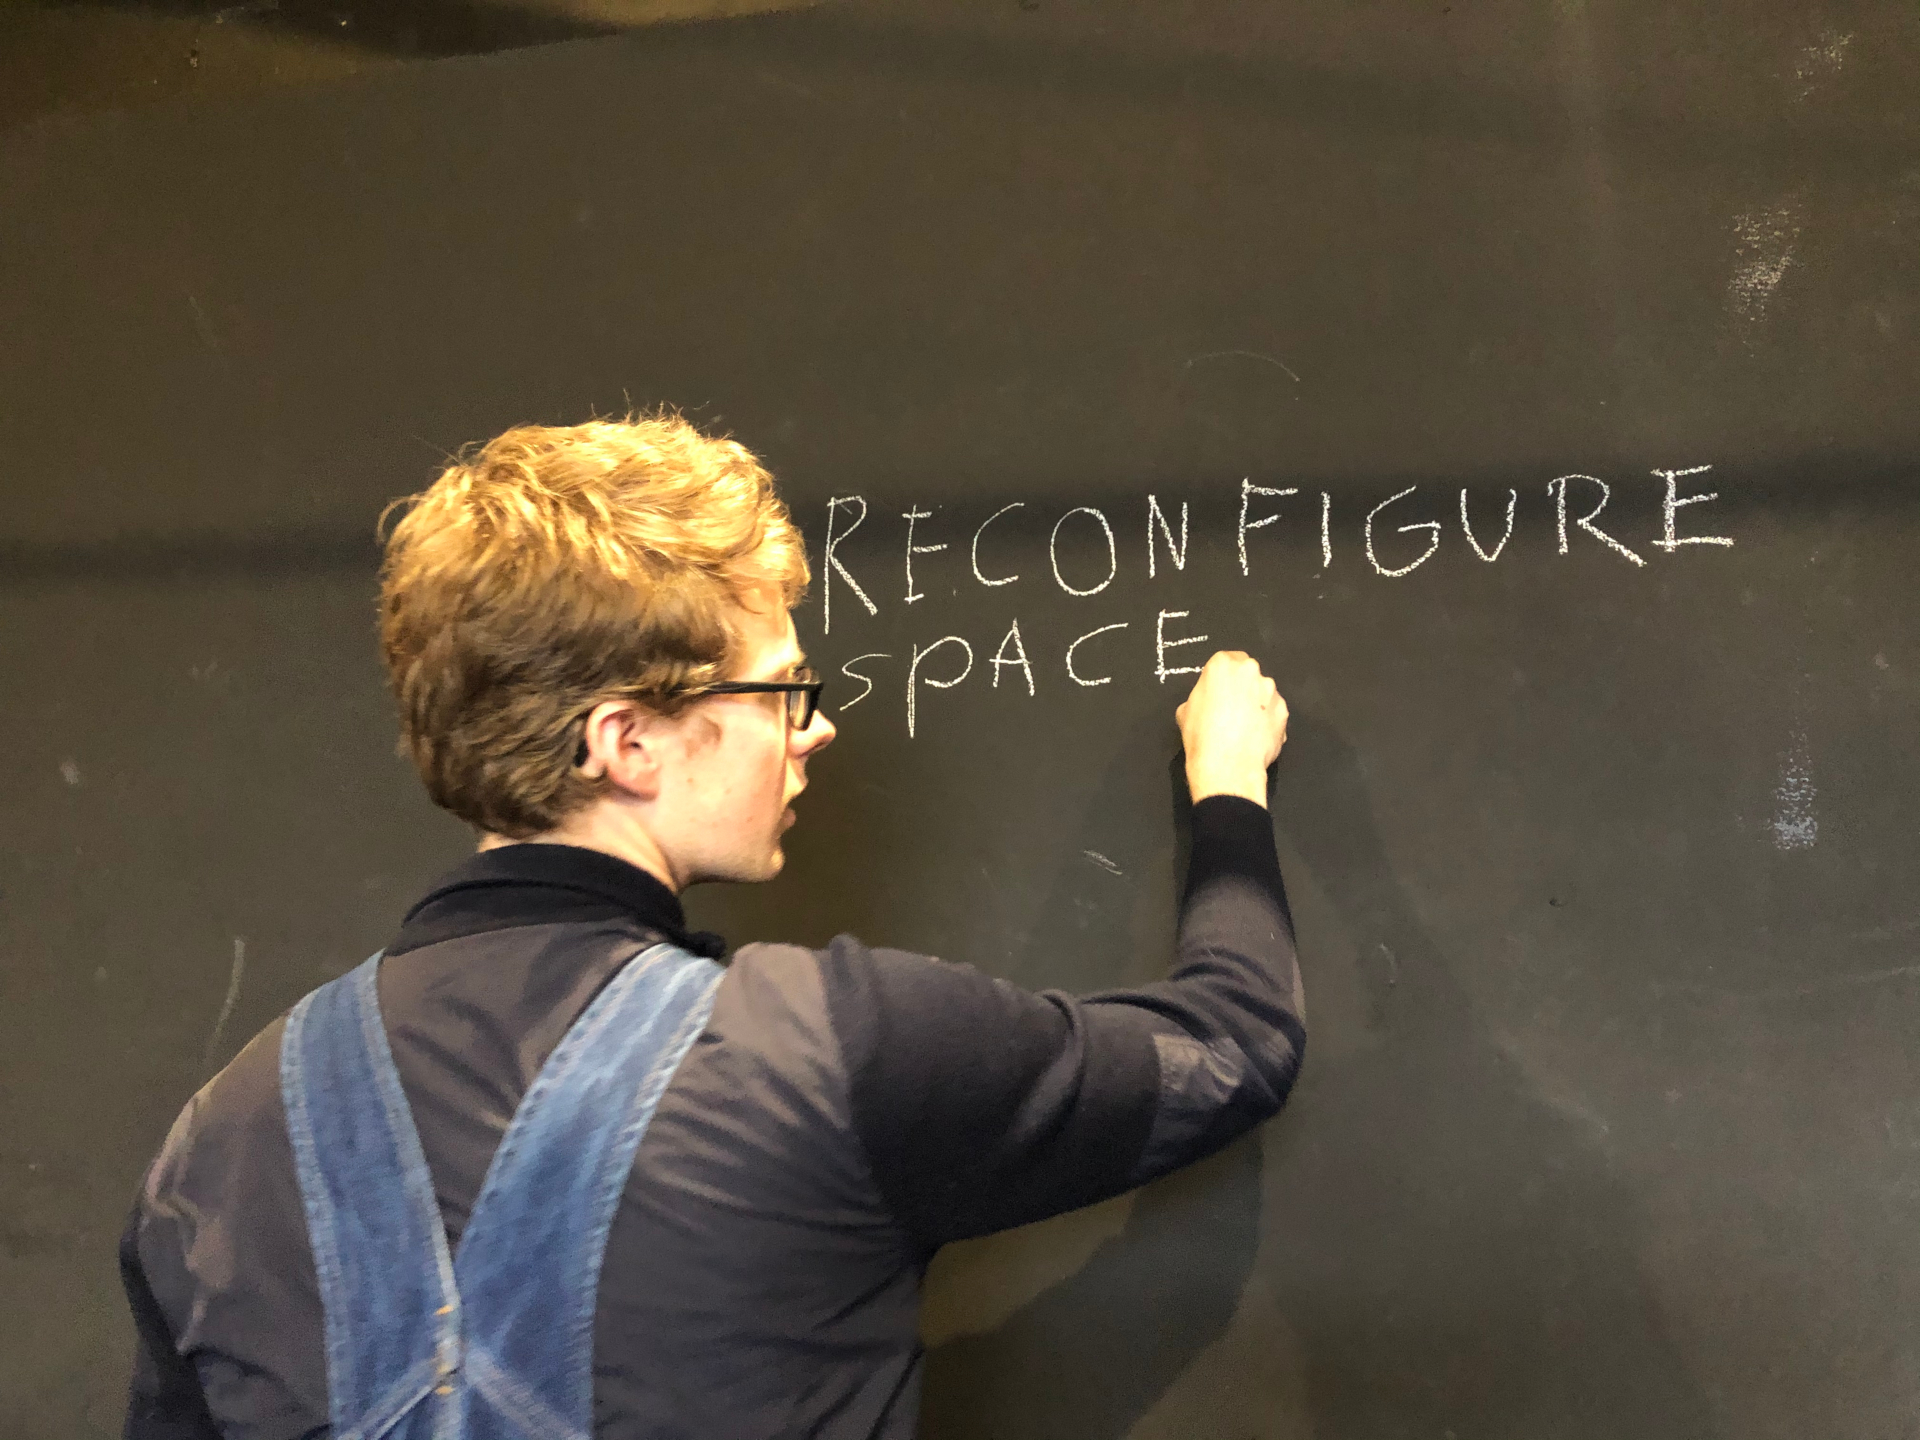 RECONFIGURE
SPACE